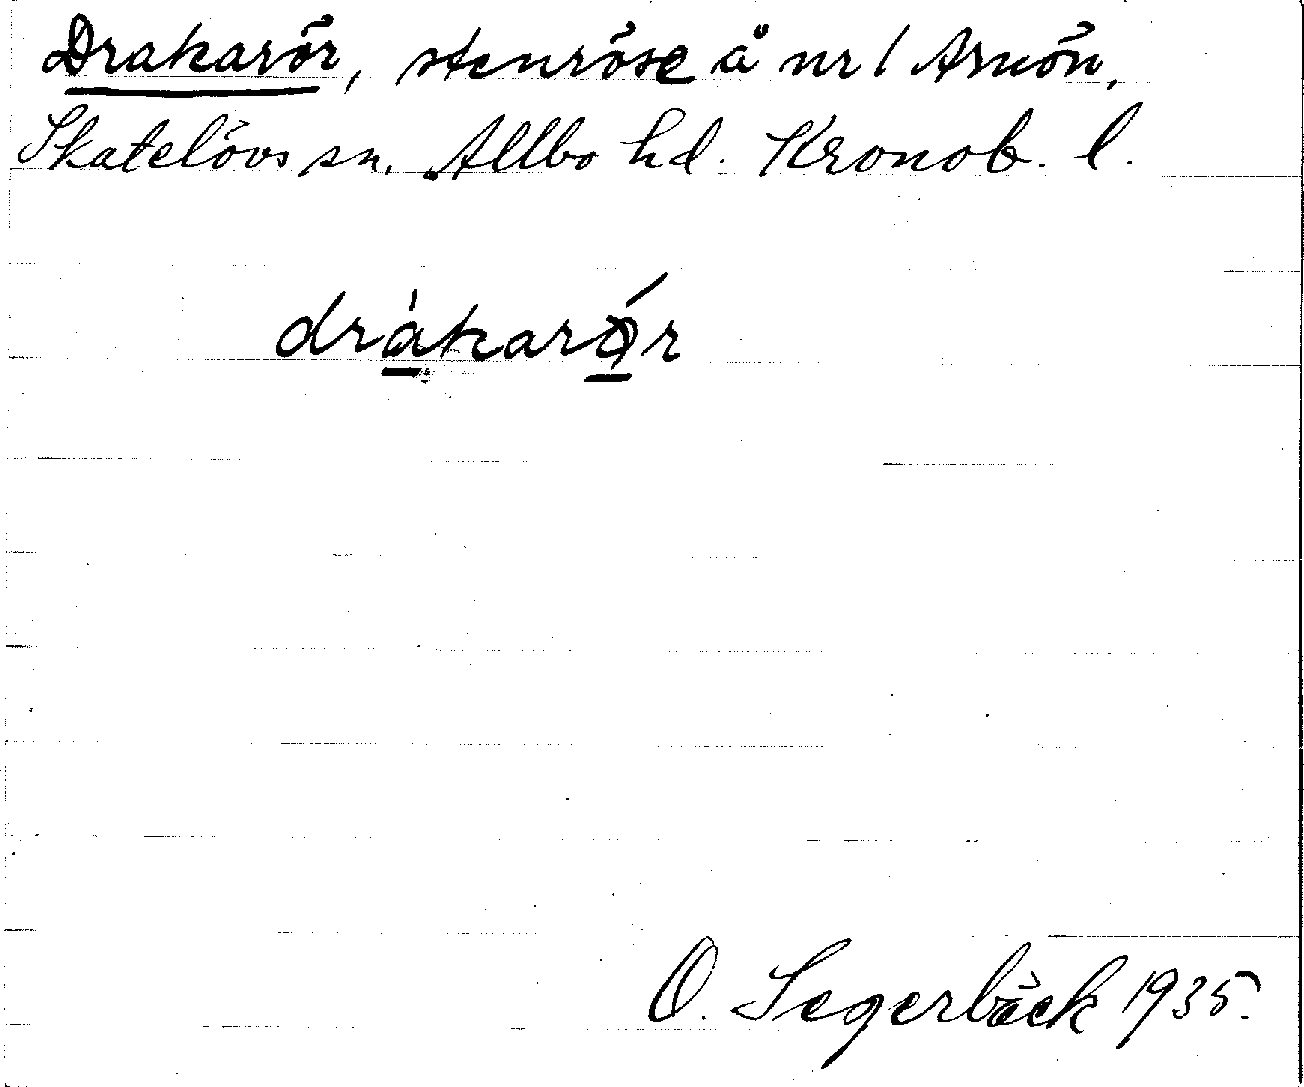 Drakarör, stenröse å nr 1 Arnön,
Skatelövs sn. Allbo hd. Kronob. l.
dràkarǿr
O. Segerbäck 1935.